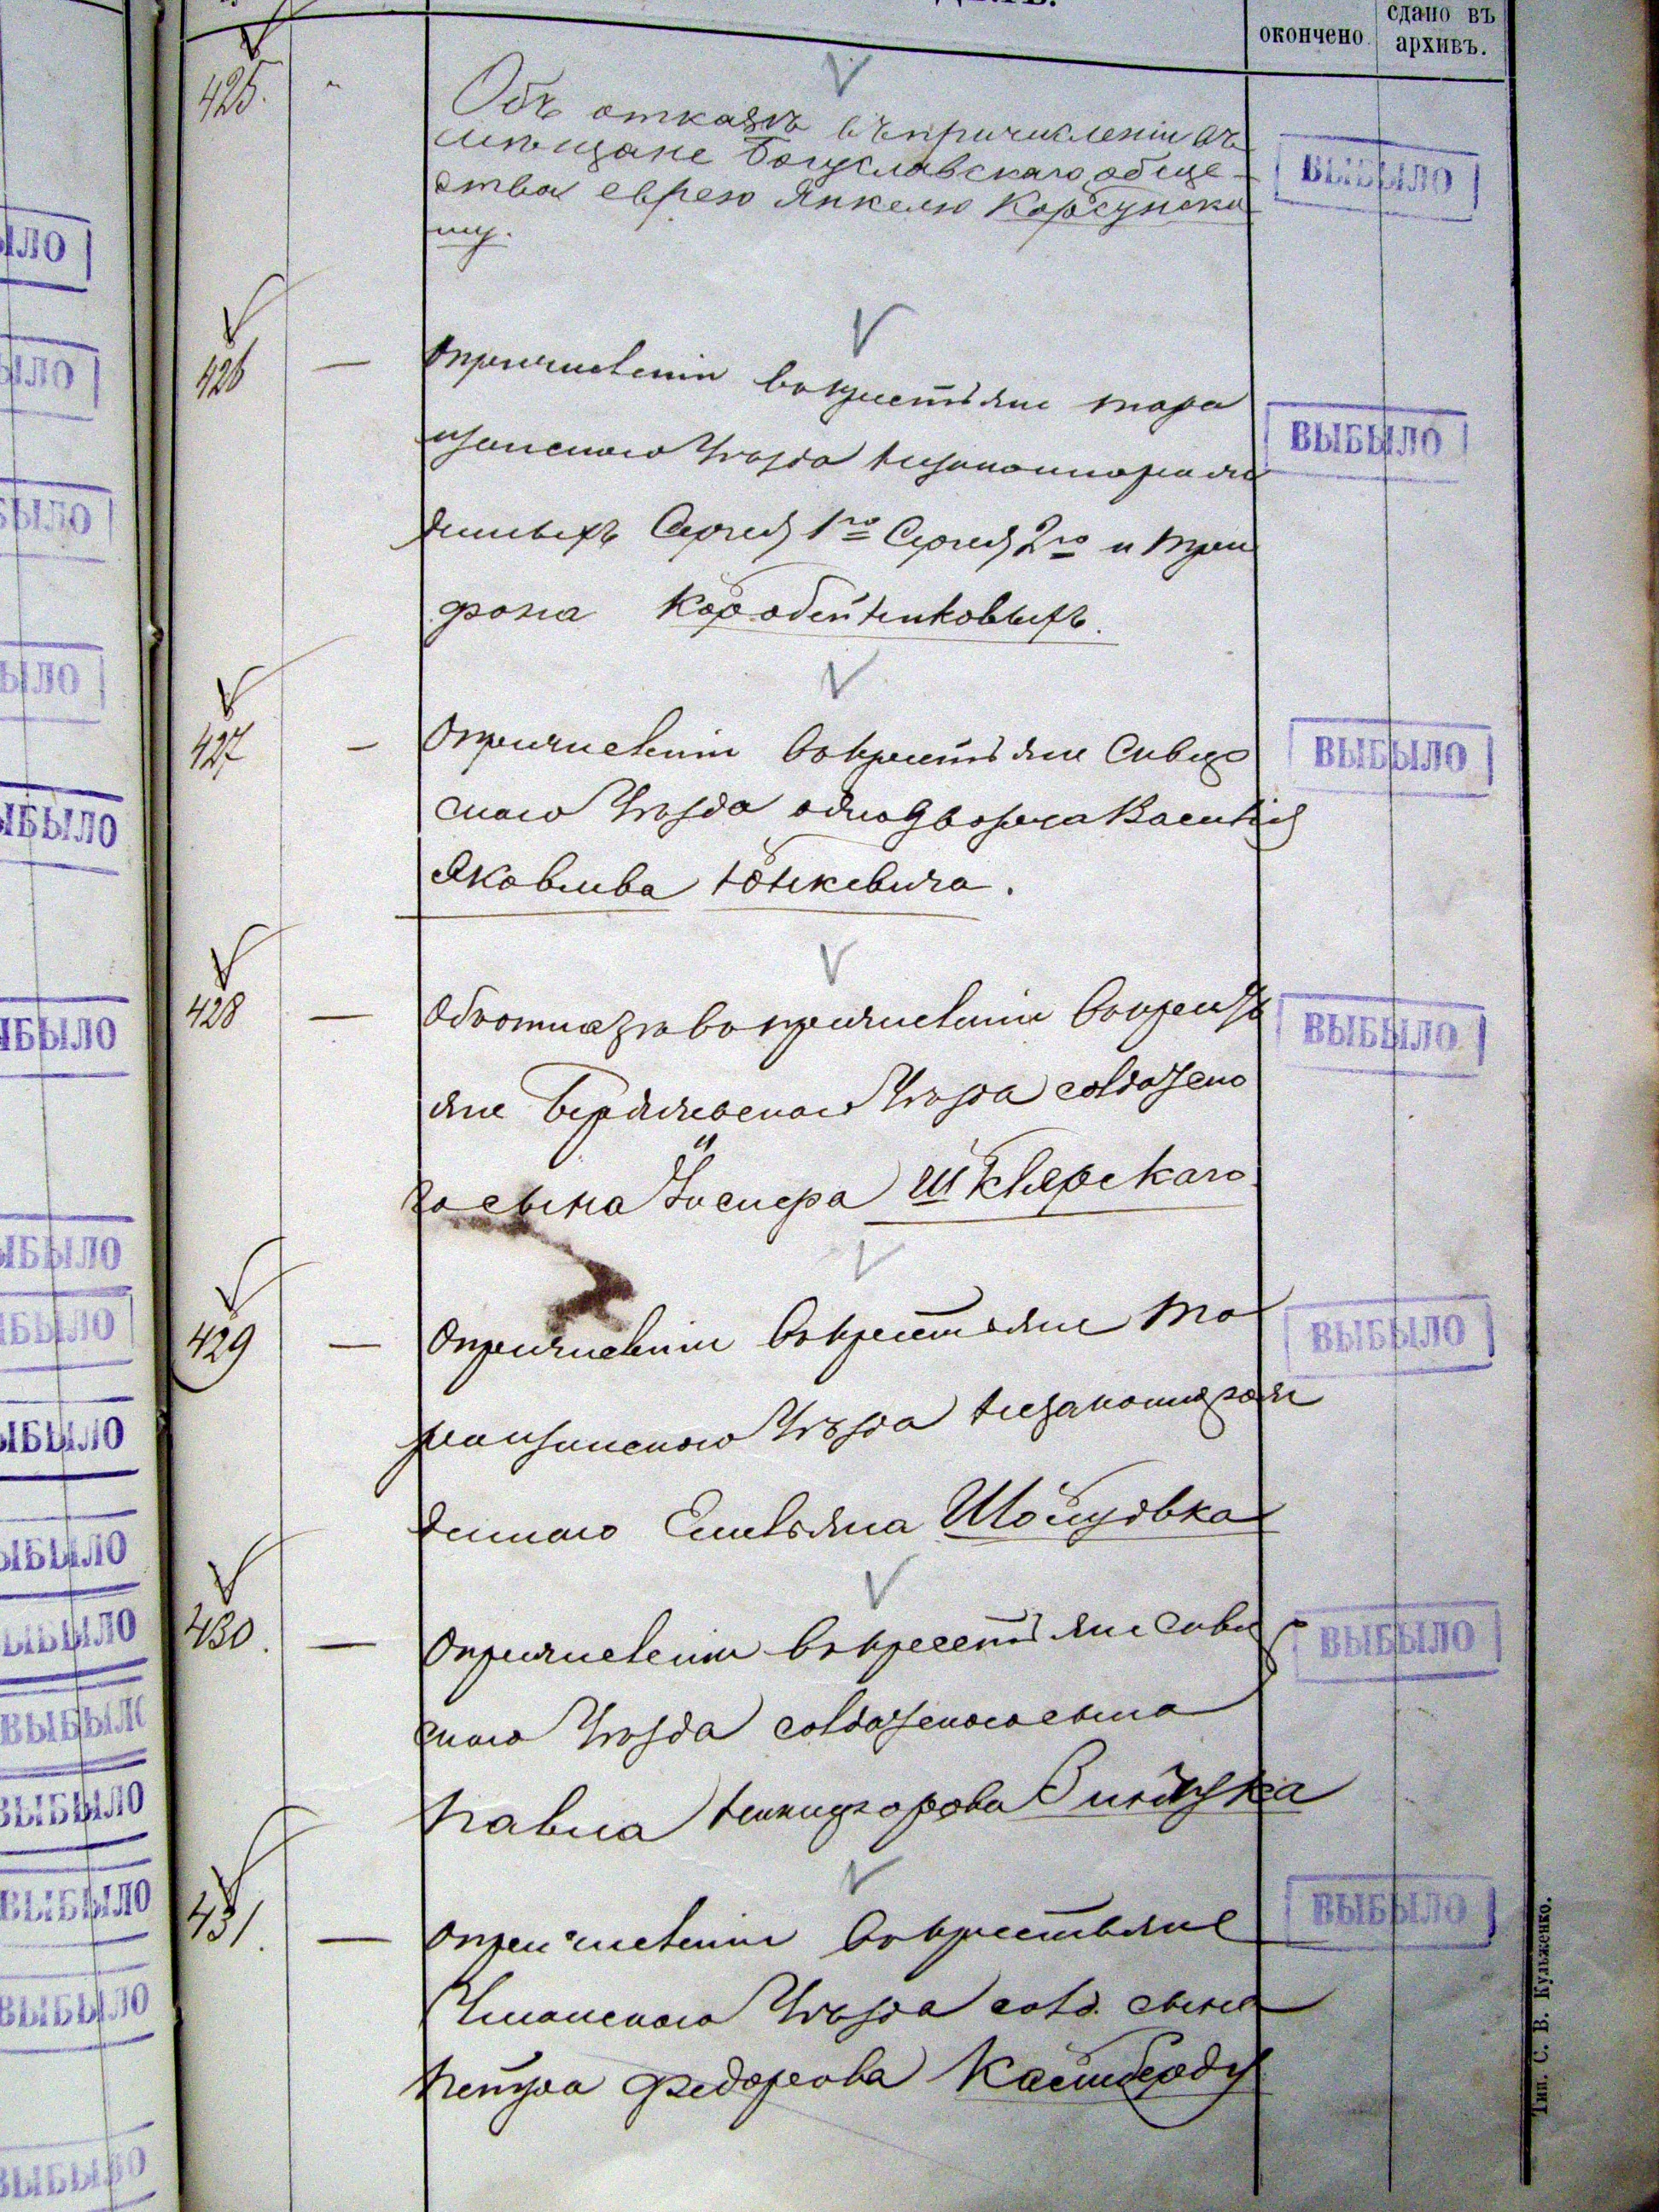 окончено.
сдано въ
архивъ.
425.
Объ отказѣ въ причисленіи въ
мѣщане Богуславскаго обще-
ства еврею Янкелю Корсунско
му.
ВЫБЫЛО
426
О причисленіи въ крестьяне Тара
щанскаго Уѣзда незаконнорож
денныхъ Сергея 1го Сергея 2го и Три
фона Коробейниковыхъ.
ВЫБЫЛО
427
О причисленіи въ крестьяне Сквир
скаго Уѣзда однодворца Василія
Яковлева Юнкевича.
ВЫБЫЛО
428
Объ отказѣ въ причисленіи въ кресть
яне Бердичевскаго Уѣзда солдатска
го сына Шклярскаго
ВЫБЫЛО
429
О причисленіи въ крестьяне Та
ращанскаго Уѣзда незаконнорож
деннаго Емельяна
ВЫБЫЛО
430.
О причисленіи въ крестьяне Сквир
скаго Уѣзда солдатскаго сына
Павла Никифорова
ВЫБЫЛО
431.
О причисленіи въ крестьяне
Уманскаго Уѣзда солд. сына
Петра Федорова
ВЫБЫЛО
Тип. С. В. Кульженко.